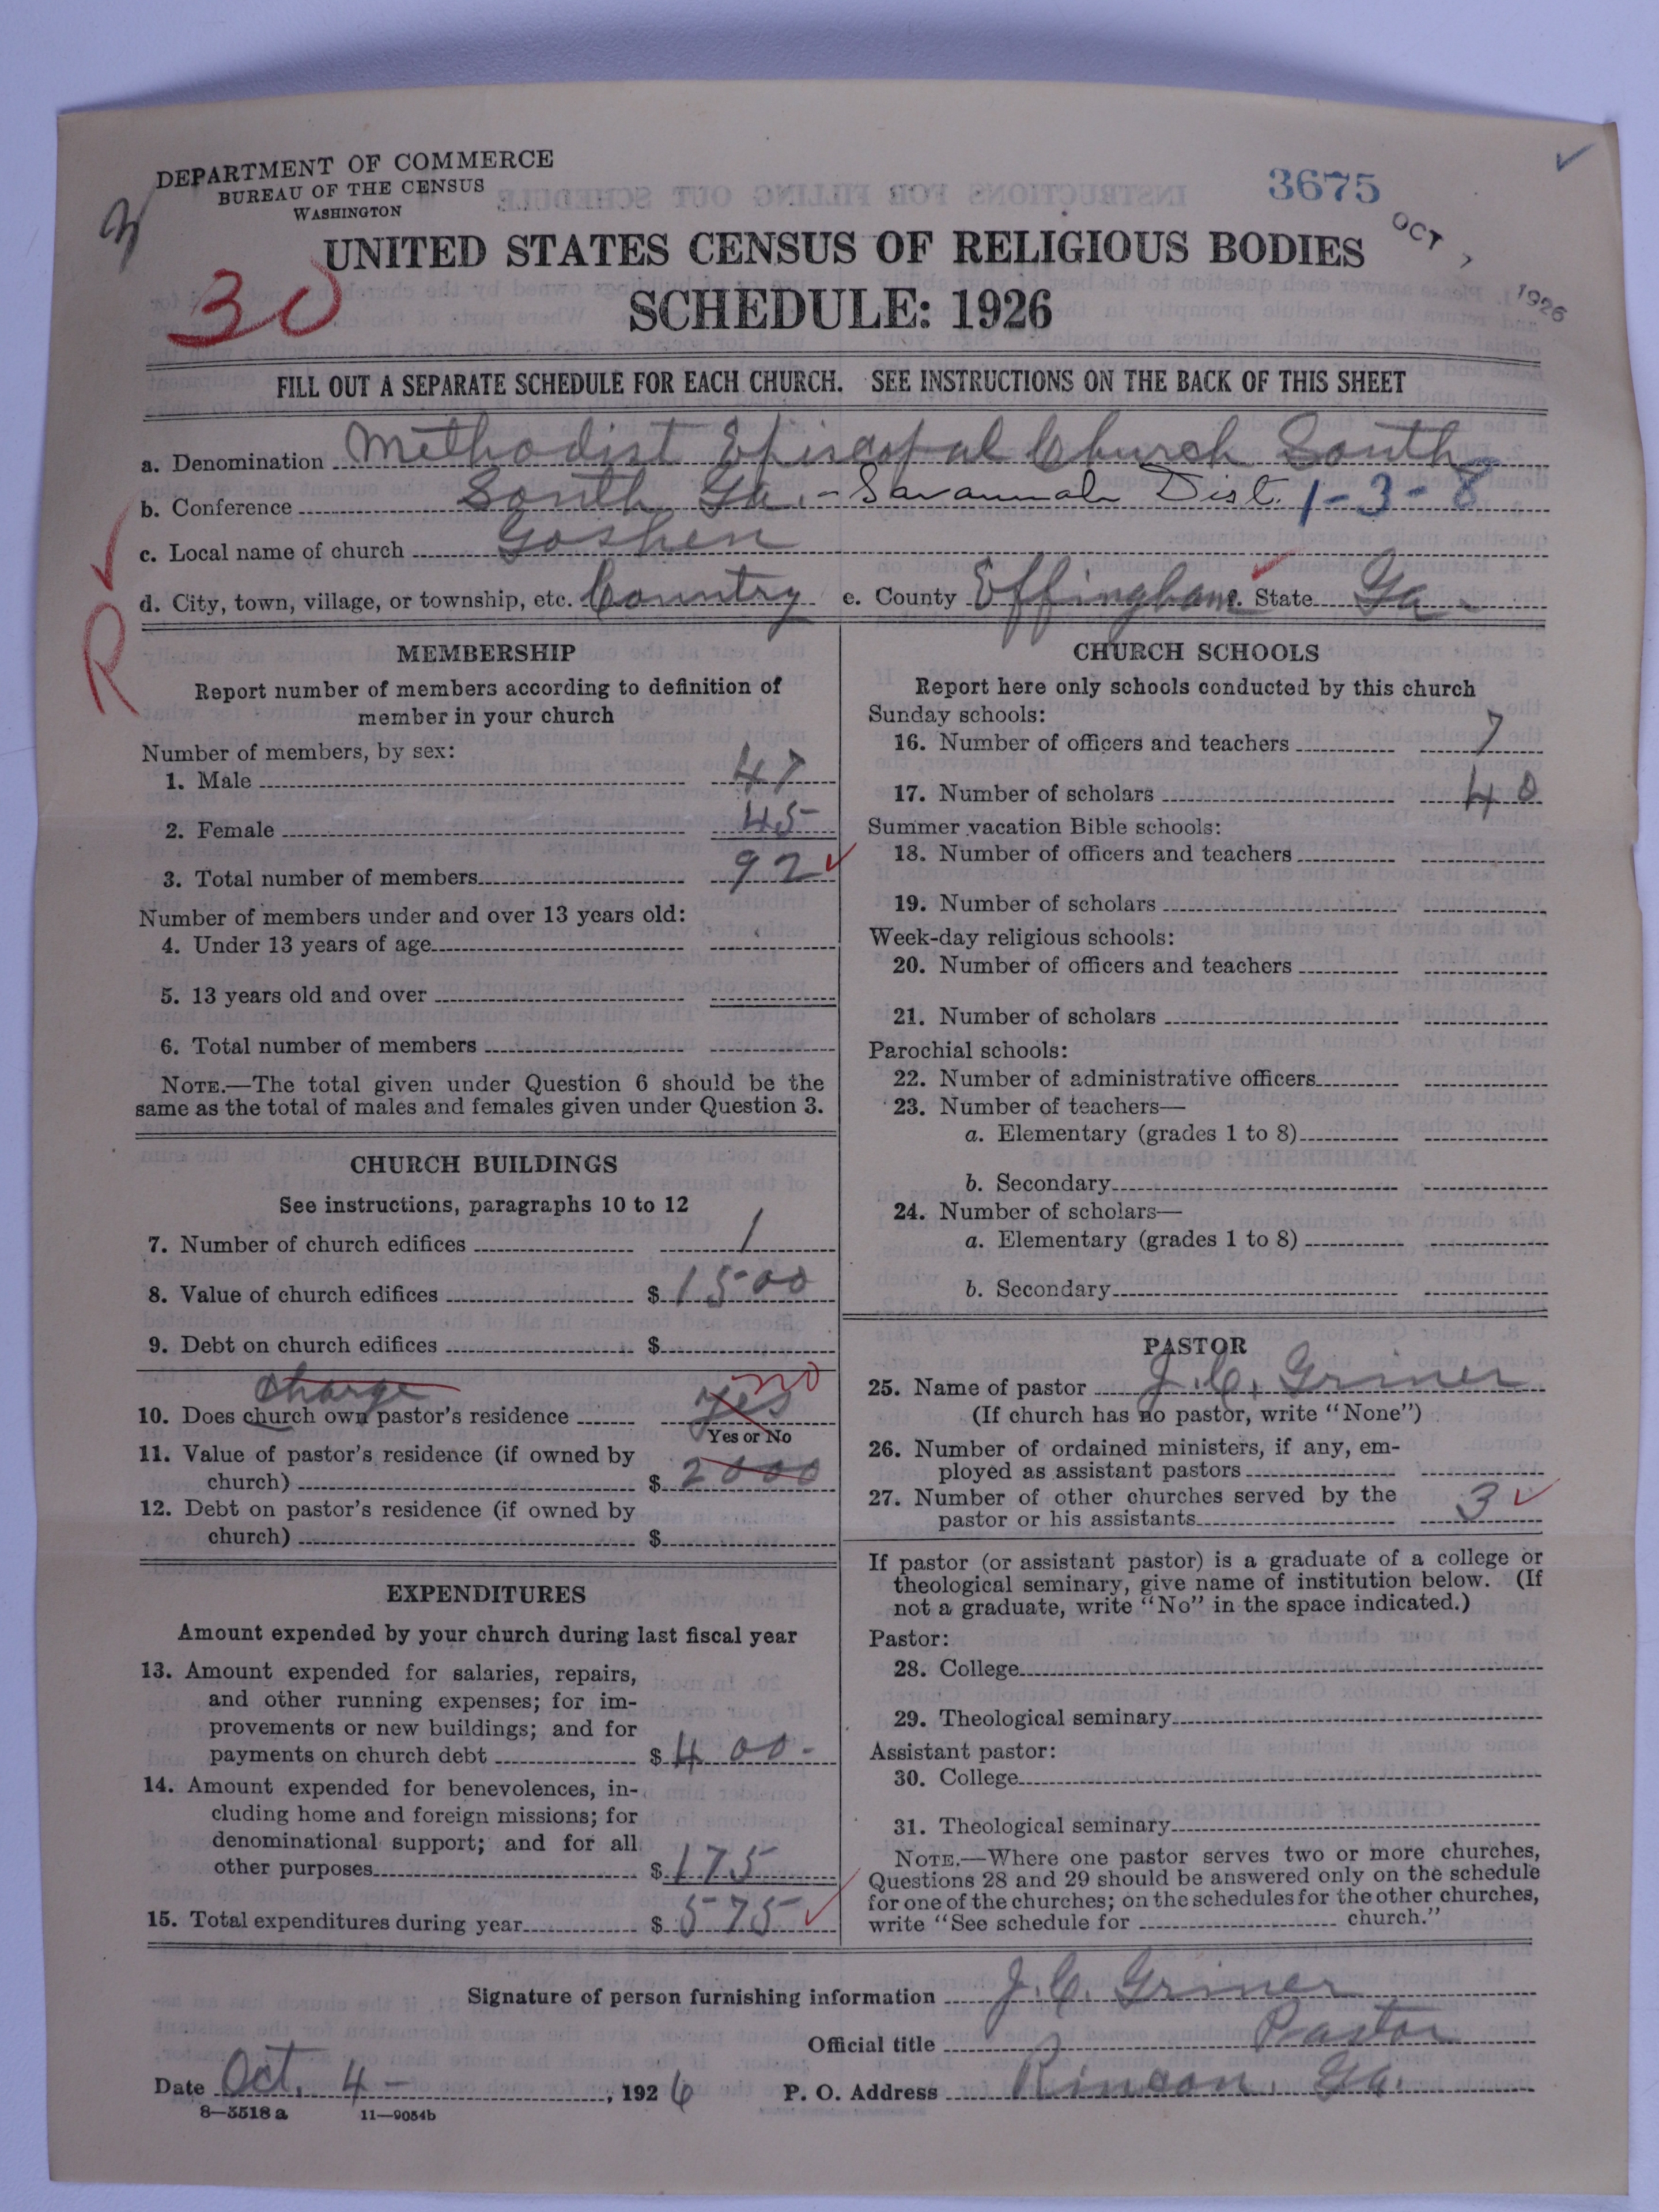 DEPARTMENT OF COMMERCE
BUREAU OF THE CENSUS
WASHINGTON
3675
OCT 7 1926
3
30
UNITED STATES CENSUS OF RELIGIOUS BODIES
SCHEDULE: 1926
FILL OUT A SEPARATE SCHEDULE FOR EACH CHURCH. SEE INSTRUCTIONS ON THE BACK OF THIS SHEET
a. Denomination Methodist Episcopal Church South
b. Conference South Ga. - Savannah Dist. 1-3-8
c. Local name of church Goshen
d. City, town, village, or township, etc. Country e. County Effingham f. State Ga.
R
MEMBERSHIP
Report number of members according to definition of
member in your church
Number of members, by sex:
1. Male 47
2. Female 45
3. Total number of members 92
Number of members under and over 13 years old:
4. Under 13 years of age
5. 13 years old and over
6. Total number of members
NOTE.—The total given under Question 6 should be the
same as the total of males and females given under Question 3.
CHURCH BUILDINGS
See instructions, paragraphs 10 to 12
7. Number of church edifices 1
8. Value of church edifices $ 1500
9. Debt on church edifices $
charge
no
10. Does church own pastor's residence yes
Yes or No
11. Value of pastor's residence (if owned by
church) $ 2000
12. Debt on pastor's residence (if owned by
church) $
EXPENDITURES
Amount expended by your church during last fiscal year
13. Amount expended for salaries, repairs,
and other running expenses; for im-
provements or new buildings; and for
payments on church debt $ 400-
14. Amount expended for benevolences, in-
cluding home and foreign missions; for
denominational support; and for all
other purposes $ 175
15. Total expenditures during year $ 575
CHURCH SCHOOLS
Report here only schools conducted by this church
Sunday schools:
16. Number of officers and teachers 7
17. Number of scholars 40
Summer vacation Bible schools:
18. Number of officers and teachers
19. Number of scholars
Week-day religious schools:
20. Number of officers and teachers
21. Number of scholars
Parochial schools:
22. Number of administrative officers
23. Number of teachers—
a. Elementary (grades 1 to 8)
b. Secondary
24. Number of scholars—
a. Elementary (grades 1 to 8)
b. Secondary
PASTOR
25. Name of pastor J. C. Griner
(If church has no pastor, write "None")
26. Number of ordained ministers, if any, em-
ployed as assistant pastors
27. Number of other churches served by the
pastor or his assistants 3
If pastor (or assistant pastor) is a graduate of a college or
theological seminary, give name of institution below. (If
not a graduate, write "No" in the space indicated.)
Pastor:
28. College
29. Theological seminary
Assistant pastor:
30. College
31. Theological seminary
NOTE.—Where one pastor serves two or more churches,
Questions 28 and 29 should be answered only on the schedule
for one of the churches; on the schedules for the other churches,
write "See schedule for church."
Signature of person furnishing information J. C. Griner
Official title Pastor
Date Oct. 4 - , 1926 P. O. Address Rincon, Ga.
8—5518 a 11—9054b